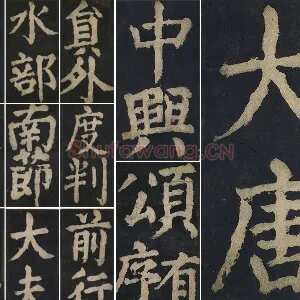 大唐
中興
頌有
序
大夫
前行
南節
度判
水部
員外
Shufawang.CN